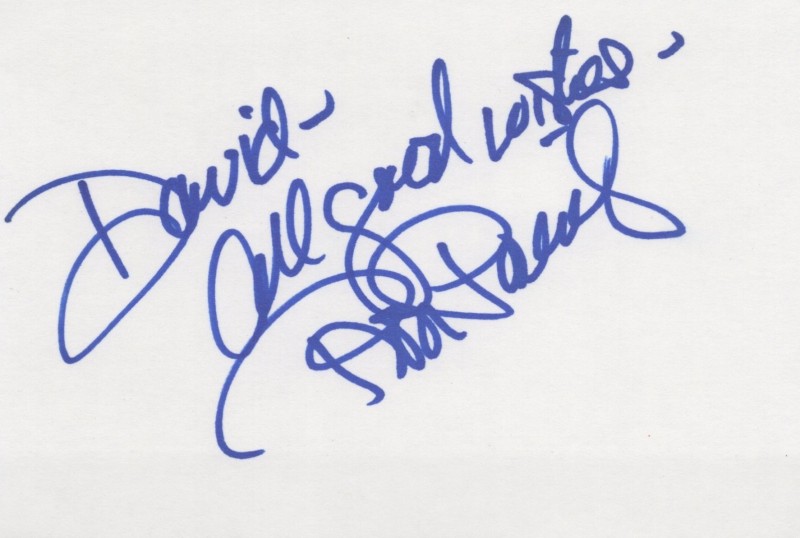 David -
All good wishes -